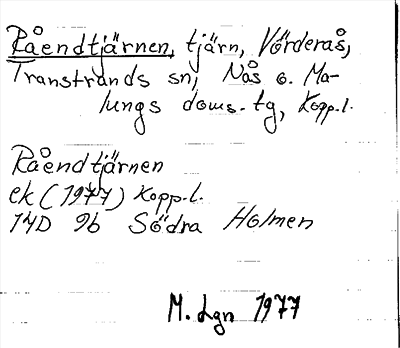 Råendtjärnen, tjärn, Vörderås,
Transtrands sn, Nås o. Ma-
lungs doms.tg, Kopp.l.
Råendtjärnen
ek (1977) Kopp.l.
14D 9b Södra Holmen
M. Lgn 1977